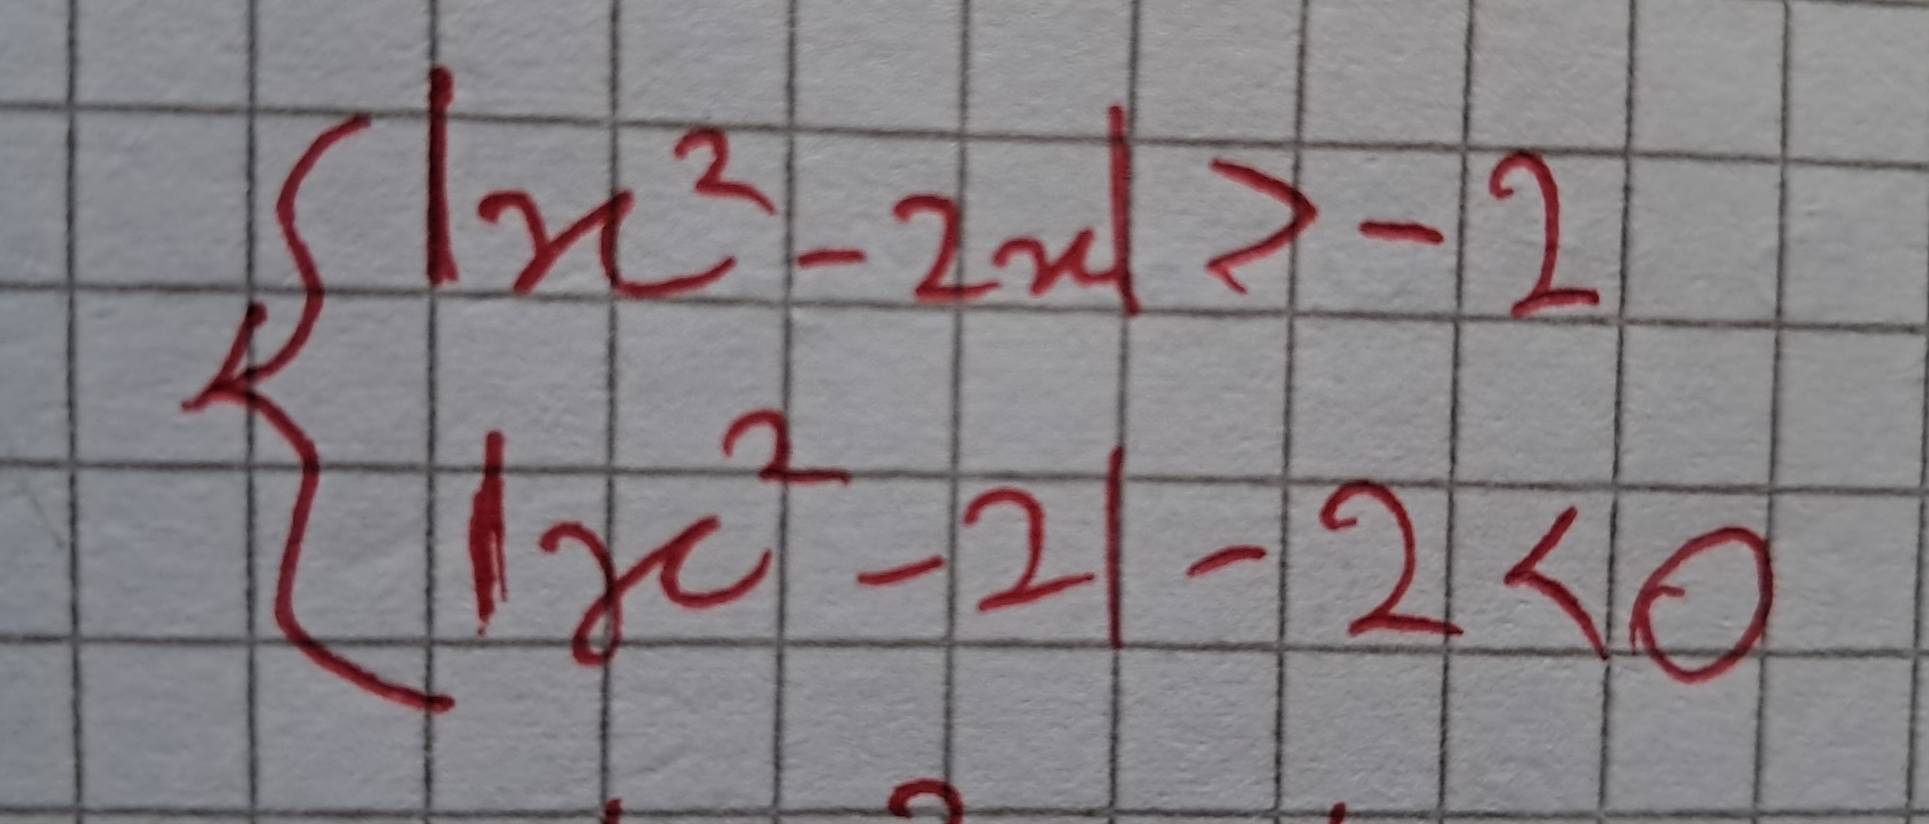 |x² - 2x| > -2
|x² - 2| - 2 < 0